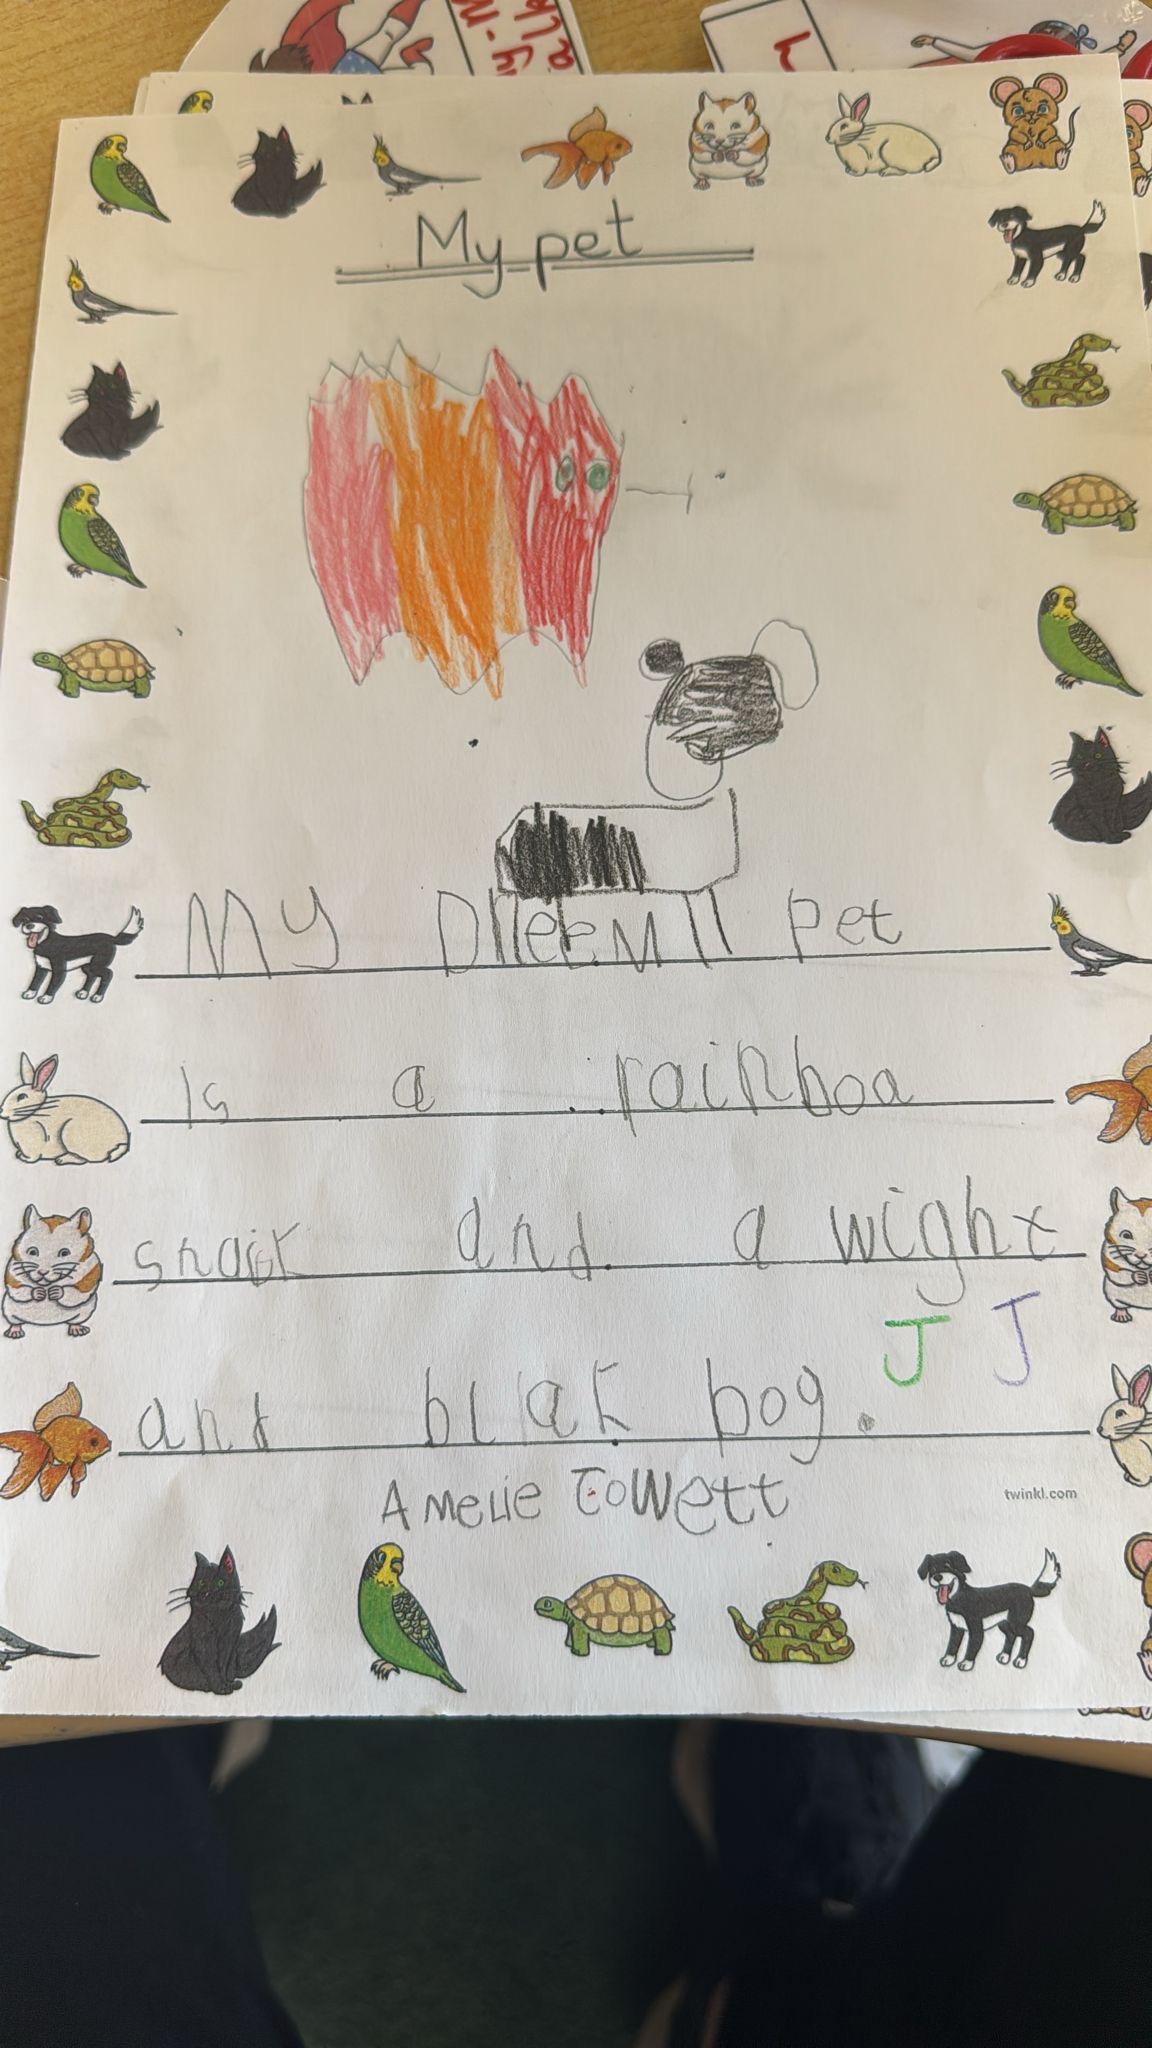 My pet
My Dreem pet
is a rainboa
snaick and a wight
J J
and blak bog.
Amelie Towett
twinkl.com